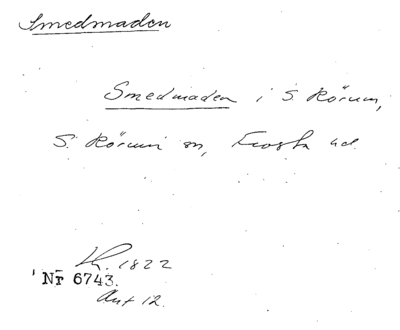 Smedmaden
Smedmaden i S. Rörum,
S. Rörum sn, Frosta hd.
Lh. 1822
Nr 6743.
Akt 12.